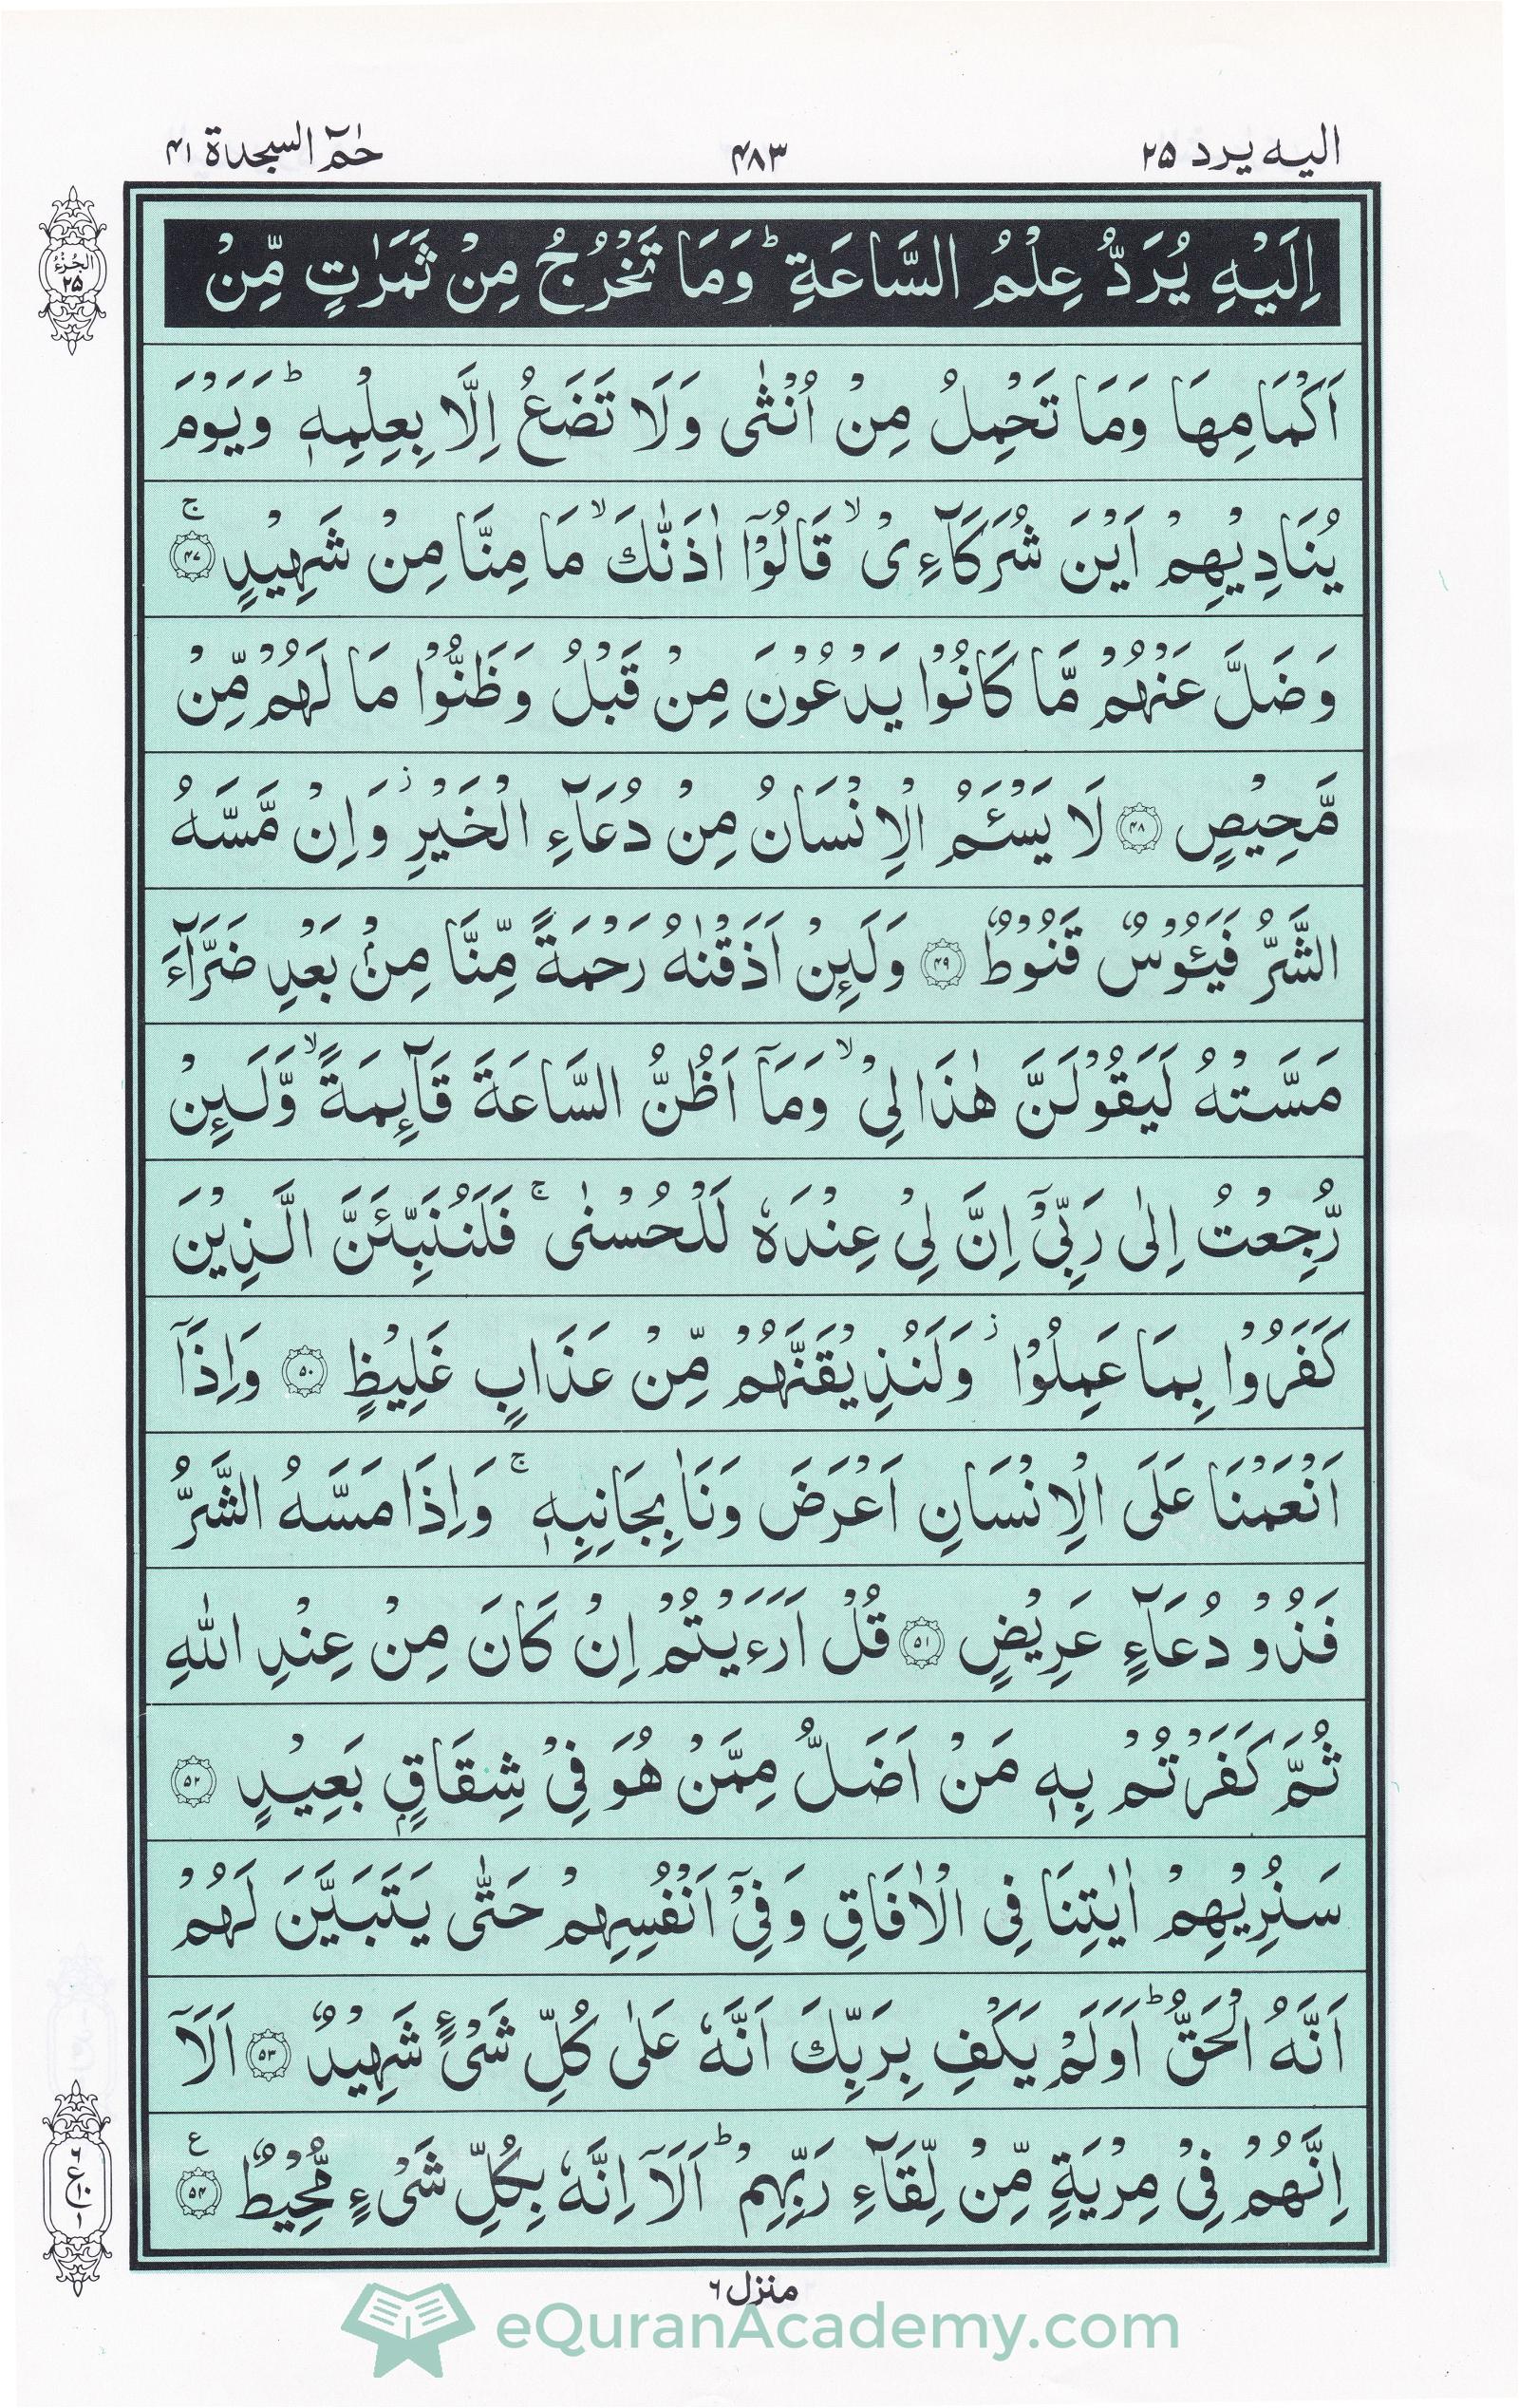 اليه يرد ٢٥
٤٨٣
حٰمٓ السجدة ٤١
الجزء ٢٥
اِلَيْهِ يُرَدُّ عِلْمُ السَّاعَةِ ؕ وَمَا تَخْرُجُ مِنْ ثَمَرٰتٍ مِّنْ
اَكْمَامِهَا وَمَا تَحْمِلُ مِنْ اُنْثٰى وَلَا تَضَعُ اِلَّا بِعِلْمِهٖ ؕ وَيَوْمَ
يُنَادِيْهِمْ اَيْنَ شُرَكَآءِىْ ۙ قَالُوْٓا اٰذَنّٰكَ ۙ مَا مِنَّا مِنْ شَهِيْدٍ ۚ ﴿٤٧﴾
وَضَلَّ عَنْهُمْ مَّا كَانُوْا يَدْعُوْنَ مِنْ قَبْلُ وَظَنُّوْا مَا لَهُمْ مِّنْ
مَّحِيْصٍ ﴿٤٨﴾ لَا يَسْـَٔمُ الْاِنْسَانُ مِنْ دُعَآءِ الْخَيْرِ ؗ وَاِنْ مَّسَّهُ
الشَّرُّ فَيَـُٔوْسٌ قَنُوْطٌ ﴿٤٩﴾ وَلَىِٕنْ اَذَقْنٰهُ رَحْمَةً مِّنَّا مِنْۢ بَعْدِ ضَرَّآءَ
مَسَّتْهُ لَيَقُوْلَنَّ هٰذَا لِىْ ۙ وَمَآ اَظُنُّ السَّاعَةَ قَآىِٕمَةً ۙ وَّلَىِٕنْ
رُّجِعْتُ اِلٰى رَبِّىْٓ اِنَّ لِىْ عِنْدَهٗ لَلْحُسْنٰى ۚ فَلَنُنَبِّئَنَّ الَّذِيْنَ
كَفَرُوْا بِمَا عَمِلُوْا ؗ وَلَنُذِيْقَنَّهُمْ مِّنْ عَذَابٍ غَلِيْظٍ ﴿٥٠﴾ وَاِذَآ
اَنْعَمْنَا عَلَى الْاِنْسَانِ اَعْرَضَ وَنَاٰ بِجَانِبِهٖ ۚ وَاِذَا مَسَّهُ الشَّرُّ
فَذُوْ دُعَآءٍ عَرِيْضٍ ﴿٥١﴾ قُلْ اَرَءَيْتُمْ اِنْ كَانَ مِنْ عِنْدِ اللّٰهِ
ثُمَّ كَفَرْتُمْ بِهٖ مَنْ اَضَلُّ مِمَّنْ هُوَ فِىْ شِقَاقٍۭ بَعِيْدٍ ﴿٥٢﴾
سَنُرِيْهِمْ اٰيٰتِنَا فِى الْاٰفَاقِ وَفِىْٓ اَنْفُسِهِمْ حَتّٰى يَتَبَيَّنَ لَهُمْ
اَنَّهُ الْحَقُّ ؕ اَوَلَمْ يَكْفِ بِرَبِّكَ اَنَّهٗ عَلٰى كُلِّ شَىْءٍ شَهِيْدٌ ﴿٥٣﴾ اَلَآ
اِنَّهُمْ فِىْ مِرْيَةٍ مِّنْ لِّقَآءِ رَبِّهِمْ ؕ اَلَآ اِنَّهٗ بِكُلِّ شَىْءٍ مُّحِيْطٌ ﴿٥٤﴾ ع
٦
ع ١٠
١
منزل ٦
eQuranAcademy.com